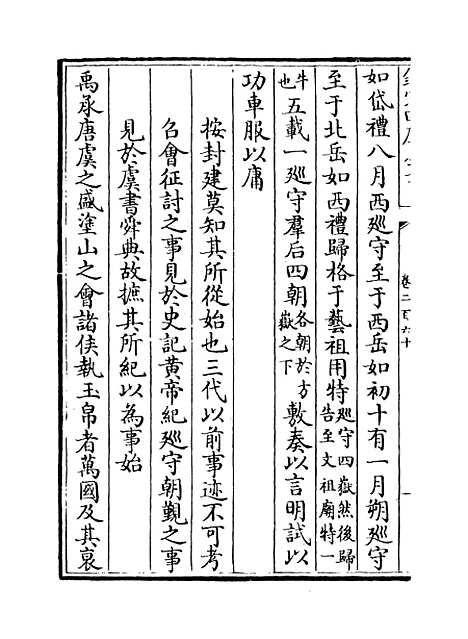 卷二百六十
如岱禮八月西廵守至于西岳如初十有一月朔廵守
至于北岳如西禮歸格于藝祖用特廵守四嶽然後歸告至文祖廟特一
牛也五載一廵守羣后四朝各朝於方嶽之下敷奏以言明試以
功車服以庸
按封建莫知其所從始也三代以前事迹不可考
召會征討之事見於史記黄帝紀廵守朝覲之事
見於虞書舜典故摭其所紀以為事始
禹承唐虞之盛塗山之會諸侯執玉帛者萬國及其衰